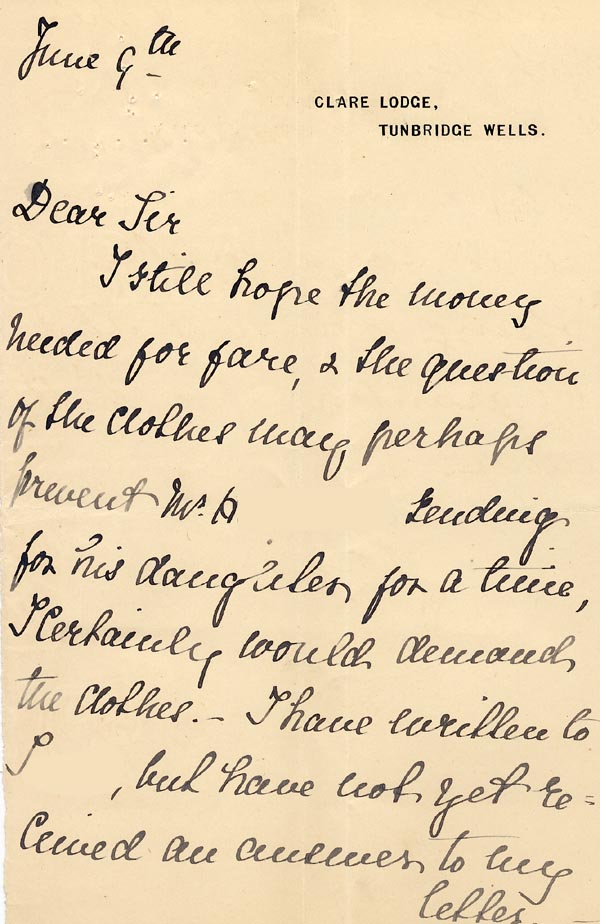 June 9th
CLARE LODGE,
TUNBRIDGE WELLS.
Dear Sir
I still hope the money
needed for fare, & the question
of the clothes may perhaps
prevent Mr. H sending
for his daughter for a time,
I certainly would demand
the clothes. – I have written to
P , but have not yet re=
ceived an answer to my
letter.